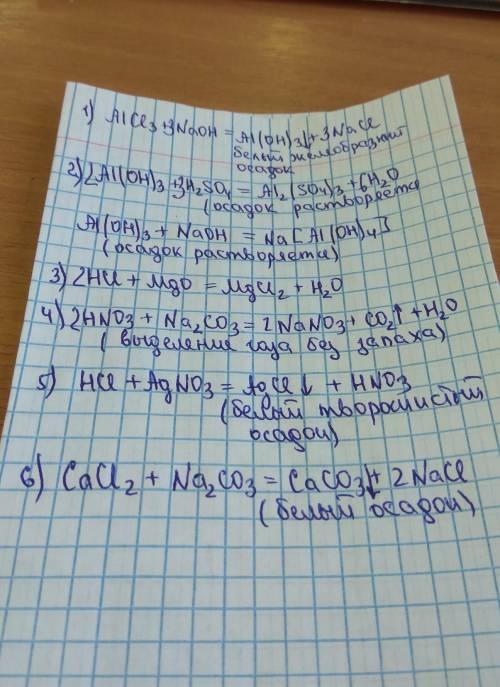 1) AlCl₃ + 3NaOH = Al(OH)₃↓ + 3NaCl
белый желеобразный
осадок
2) 2Al(OH)₃ + 3H₂SO₄ = Al₂(SO₄)₃ + 6H₂O
(осадок растворяется
Al(OH)₃ + NaOH = Na[Al(OH)₄]
(осадок растворяется)
3) 2HCl + MgO = MgCl₂ + H₂O
4) 2HNO₃ + Na₂CO₃ = 2NaNO₃ + CO₂↑ + H₂O
(выделение газа без запаха)
5) HCl + AgNO₃ = AgCl↓ + HNO₃
(белый творожистый
осадок)
6) CaCl₂ + Na₂CO₃ = CaCO₃↓ + 2NaCl
(белый осадок)